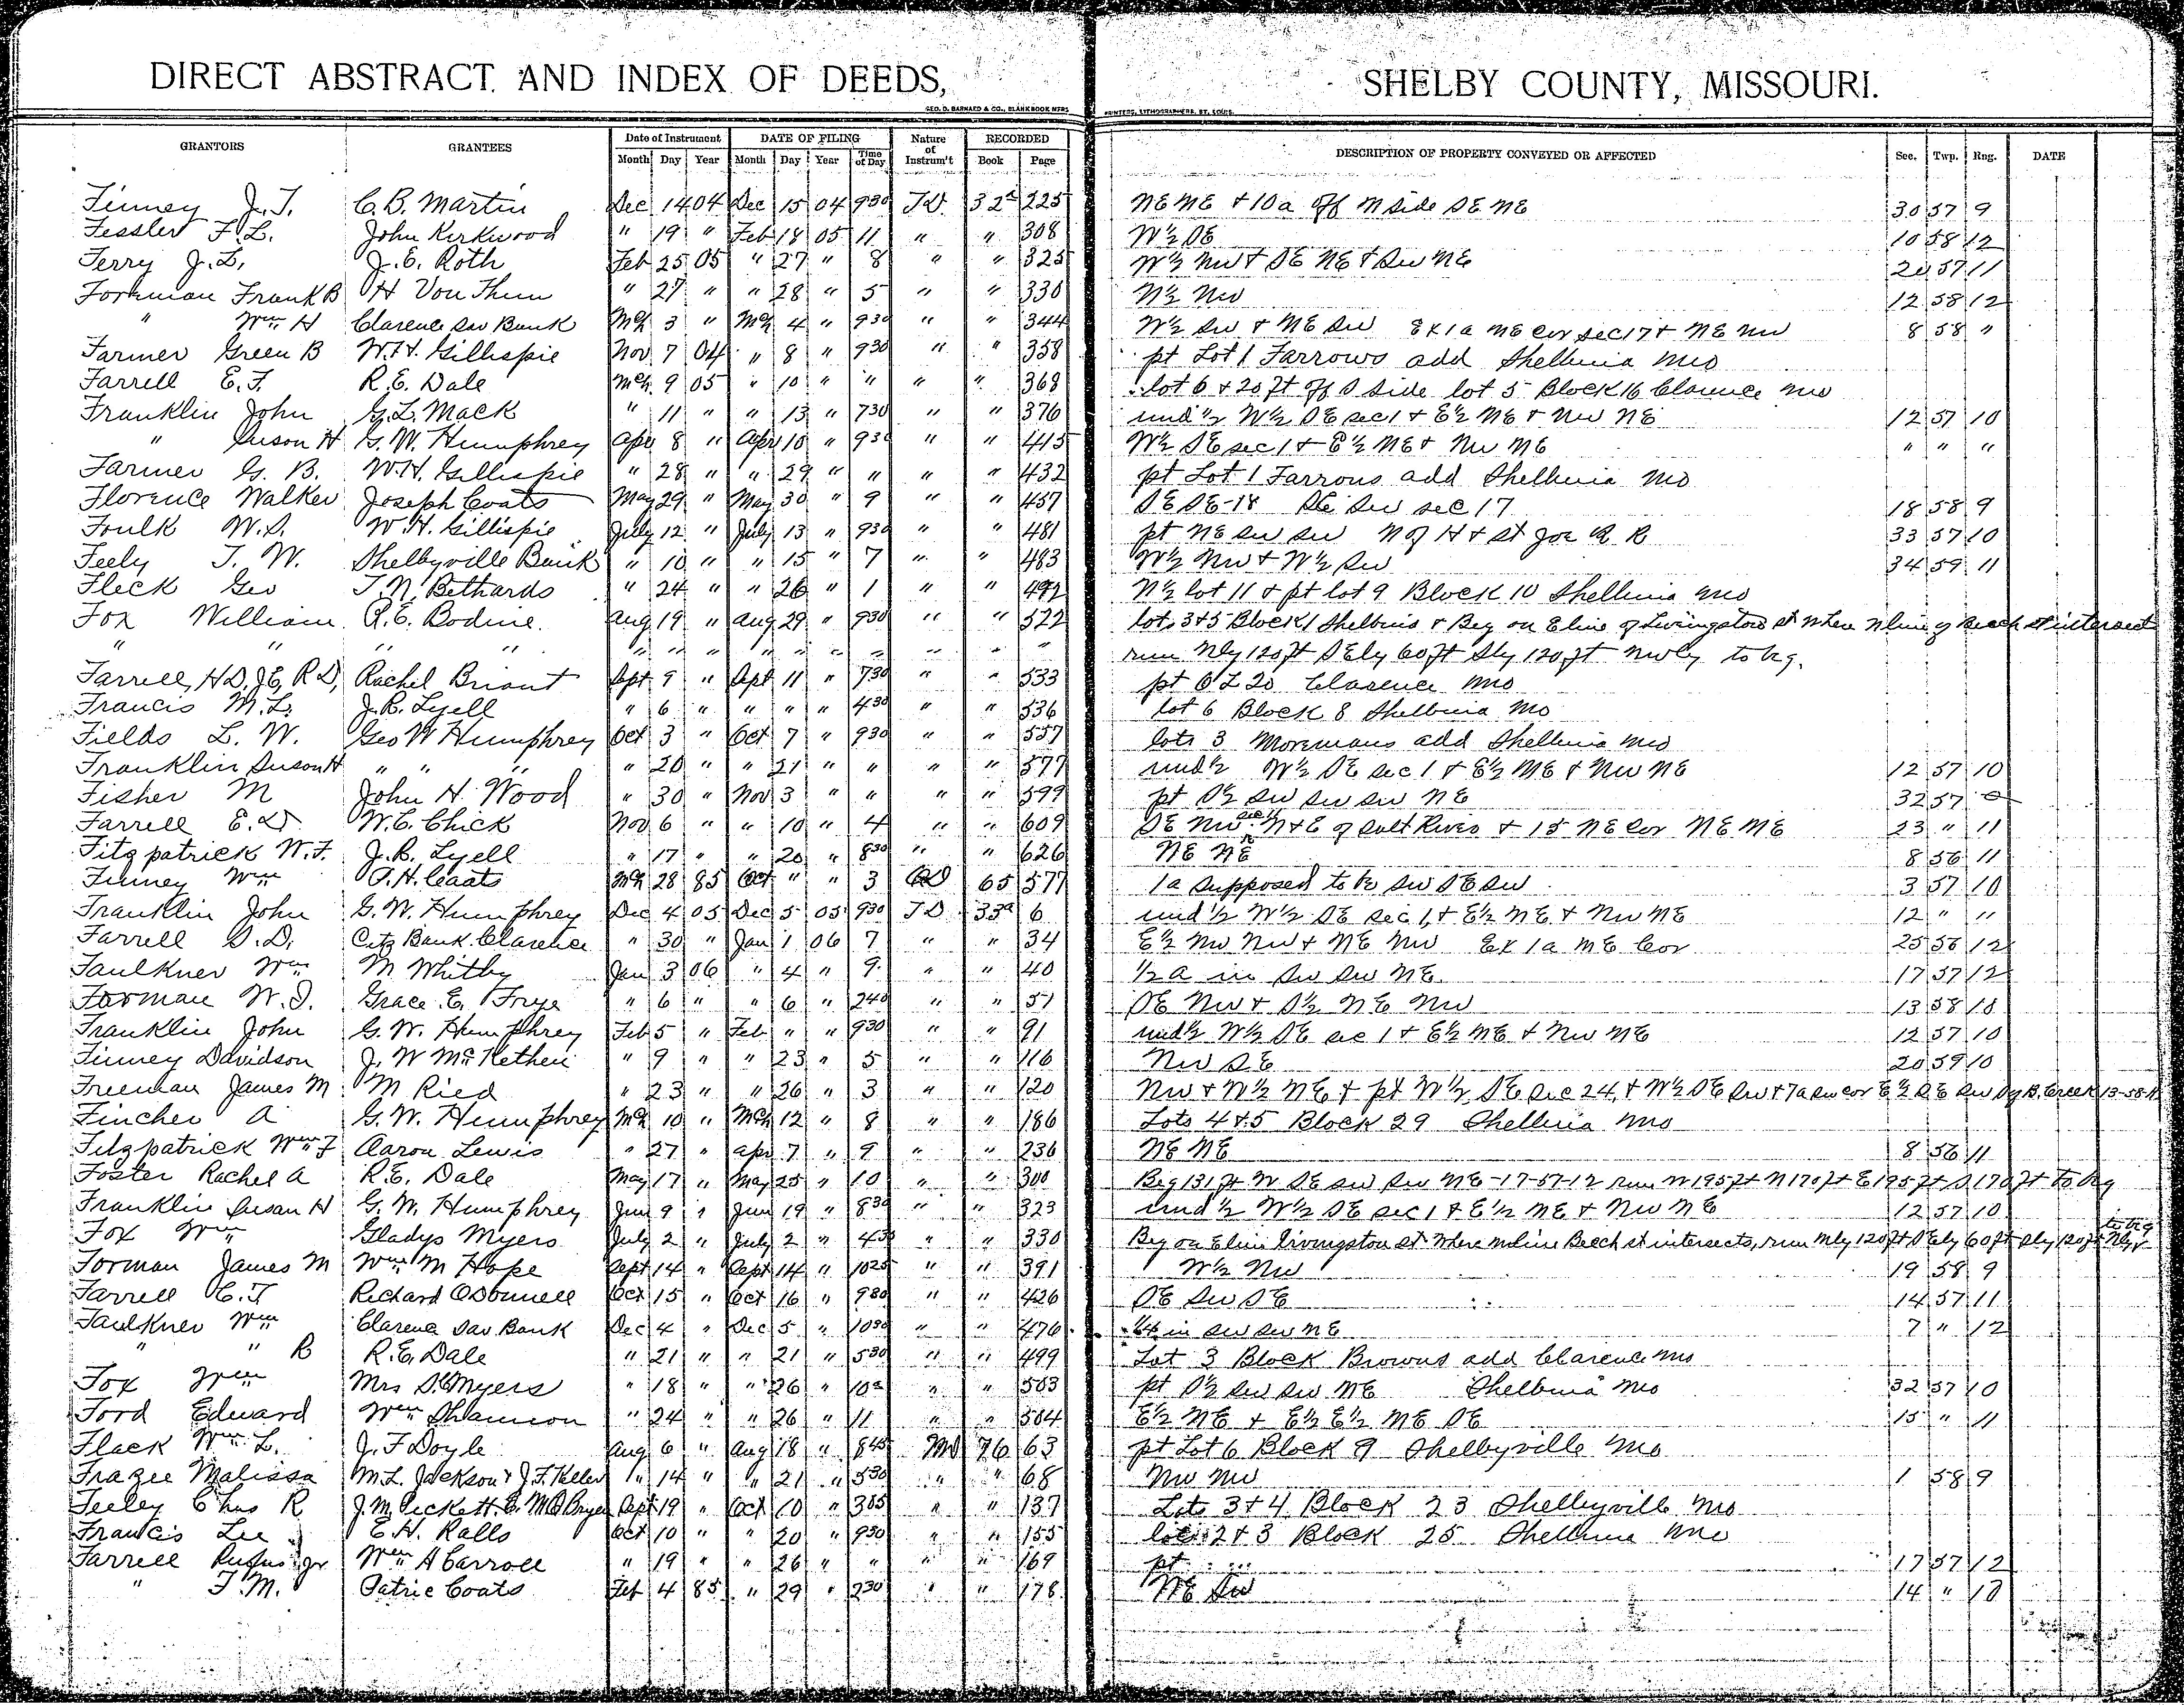 DIRECT ABSTRACT AND INDEX OF DEEDS, SHELBY COUNTY, MISSOURI.
GEO. D. BARNARD & CO., BLANK BOOK MFRS PRINTERS, LITHOGRAPHERS, ST. LOUIS.
GRANTORS GRANTEES Date of Instrument DATE OF FILING Nature of Instrum't RECORDED DESCRIPTION OF PROPERTY CONVEYED OR AFFECTED Sec. Twp. Rng. DATE
Month Day Year Month Day Year Time of Day Book Page
Finney J.T. C.B. Martin Dec 14 04 Dec 15 04 930 TD 32a 225 NE NE + 10a off N side SE NE 30 57 9
Fessler F.L. John Kirkwood " 19 " Feb 18 05 11 " " 308 W½ SE 10 58 12
Ferry J.L. J.E. Roth Feb 25 05 " 27 " 8 " " 325 W½ NW + SE NE + SW NE 20 57 11
Forman Frank B H Von Thun " 27 " " 28 " 5 " " 330 N½ NW 12 58 12
" Wm H Clarence Sav Bank Mch 3 " Mch 4 " 930 " " 344 W½ SW + NE SW Ex 1a NE cor sec 17 + NE NW 8 58 "
Farmer Green B W.H. Gillispie Nov 7 04 " 8 " 930 " " 358 pt Lot 1 Farrows add Shelbina Mo
Farrell E.T. R.E. Dale Mch 9 05 " 10 " " " " 368 lot 6 + 20 ft off S side lot 5 Block 16 Clarence Mo
Franklin John G.L. Mack " 11 " " 13 " 730 " " 376 und ½ W½ SE sec 1 + E½ NE + NW NE 12 57 10
" Susan H G.W. Humphrey Apr 8 " Apr 10 " 930 " " 415 W½ SE sec 1 + E½ NE + NW NE " " "
Farmer G. B. W.H. Gillispie " 28 " " 29 " " " " 432 pt Lot 1 Farrous add Shelbina Mo
Florence Walker Joseph Coats May 29 " May 30 " 9 " " 457 SE SE-18 SE SW sec 17 18 58 9
Foulk W.S. W.H. Gillispie July 12 " July 13 " 930 " " 481 pt NE SW SW N of H + St Joe R R 33 57 10
Feely T. W. Shelbyville Bank " 10 " " 15 " 7 " " 483 W½ NW + W½ SW 34 59 11
Fleck Geo T.N. Bethards " 24 " " 26 " 1 " " 492 N½ lot 11 + pt lot 9 Block 10 Shelbina Mo
Fox William R.E. Bodine Aug 19 " Aug 29 " 930 " " 522 lots 3 + 5 Block 1 Shelbina + Beg on E line of Livingston st where N line of Beech st intersect
" " " " " " " " " " " " " " run Nly 120 ft SEly 60 ft Sly 120 ft NWly to bg.
Farrell, HD, JE, R D, Rachel Briant Sept 9 " Sept 11 " 730 " " 533 pt O L 20 Clarence Mo
Francis M.L. J.R. Lyell " 6 " " " " 430 " " 536 lot 6 Block 8 Shelbina Mo
Fields L. W. Geo W Humphrey Oct 3 " Oct 7 " 930 " " 557 lots 3 Moremans add Shelbina Mo
Franklin Susan H " " " " 20 " " 21 " " " " 577 und ½ W½ SE sec 1 + E½ NE + NW NE 12 57 10
Fisher M John H. Wood " 30 " Nov 3 " " " " 599 pt S½ SW SW SW NE 32 57
Farrell E.D. W.C. Chick Nov 6 " " 10 " 4 " " 609 SE NW N+E of Salt River + 15 NE Cor NE NE 23 " 11
Fitzpatrick W.F. J.R. Lyell " 17 " " 20 " 830 " " 626 NE NE 8 56 11
Finney Wm T.H. Coats Mch 28 85 Oct " " 3 QD 65 577 1a supposed to be SW SE SW 3 57 10
Franklin John G.W. Humphrey Dec 4 05 Dec 5 05 930 TD 33a 6 und ½ W½ SE sec 1, + E½ NE + NW NE 12 " "
Farrell S.D. Citz Bank Clarence " 30 " Jan 1 06 7 " " 34 E½ NW NW + NE NW Ex 1a NE Cor 25 56 12
Faulkner Wm M Whitby Jan 3 06 " 4 " 9 " " 40 ½ a in SW SW NE 17 57 12
Forman W.I. Grace E. Frye " 6 " " 6 " 240 " " 51 SE NW + S½ NE NW 13 58 10
Franklin John G.W. Humphrey Feb 5 " Feb " " 930 " " 91 und ½ W½ SE sec 1 + E½ NE + NW NE 12 57 10
Finney Davidson J. W McKethen " 9 " " 23 " 5 " " 116 NW SE 20 59 10
Freeman James M M Ried " 23 " " 26 " 3 " " 120 NW + W½ NE + pt W½ SE sec 24, + W½ SE SW + 7a SW cor E½ SE SW S of B. Creek 13-58-11
Fincher A G.W. Humphrey Mch 10 " Mch 12 " 8 " " 186 Lots 4 & 5 Block 29 Shelbina Mo
Fitzpatrick Wm F Aaron Lewis " 27 " Apr 7 " 9 " " 236 NE NE 8 56 11
Foster Rachel A R.E. Dale May 17 " May 25 " 10 " " 300 Beg 131 ft W SE SW SW NE-17-57-12 run W 195 ft N 170 ft E 195 ft S 170 ft to bg
Franklin Susan H G.W. Humphrey Jun 9 " Jun 19 " 830 " " 323 und ½ W½ SE sec 1 + E½ NE + NW NE 12 57 10
Fox Wm Gladys Myers July 2 " July 2 " 430 " " 330 Beg on E line Livingston st where N line Beech st intersects, run Nly 120 ft SEly 60 ft Sly 120 ft Nly to bg
Forman James M Wm M Hope Sept 14 " Sept 14 " 1025 " " 391 W½ NW 19 58 9
Farrell E.T Richard ODonnell Oct 15 " Oct 16 " 930 " " 426 SE SW SE 14 57 11
Faulkner Wm Clarence Sav Bank Dec 4 " Dec 5 " 1030 " " 476 in SW SW NE 7 " 12
" " B R.E. Dale " 21 " " 21 " 530 " " 499 Lot 3 Block Browns add Clarence Mo
Fox Wm Mrs S.C Myers " 18 " " 26 " 10 " " 503 pt S½ SW SW NE Shelbina Mo 32 57 10
Ford Edward Wm Shannon " 24 " " 26 " 11 " " 504 E½ NE + E½ E½ NE SE 15 " 11
Flack Wm L. J. F Doyle Aug 6 " Aug 18 " 845 MD 76 63 pt Lot 6 Block 9 Shelbyville Mo
Frazee Malissa M.L. Jackson + J.F. Keller " 14 " " 21 " 530 " " 68 NW NW 1 58 9
Feeley Chas R J.M. Pickett Sept 19 " Oct 10 " 305 " " 137 Lots 3 + 4 Block 23 Shelbyville Mo
Francis Lee E.H. Ralls Oct 10 " " 20 " 930 " " 155 lots 2 + 3 Block 25 Shelbina Mo
Farrell Rufus Jr Wm A Carroll " 19 " " 26 " " " " 169 pt 17 57 12
" T.M. Patric Coats Feb 4 85 " 29 " 230 " " 178 NE SW 14 " 10